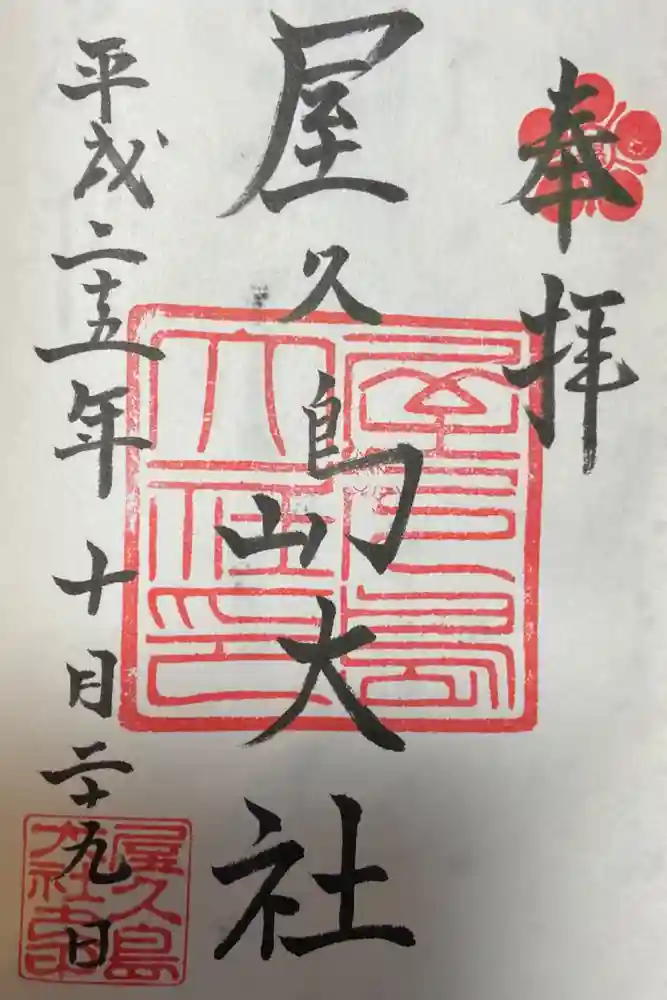 奉拝
屋久島大社
平成二十五年十月二十九日
屋久島
大社印
屋久島
大社